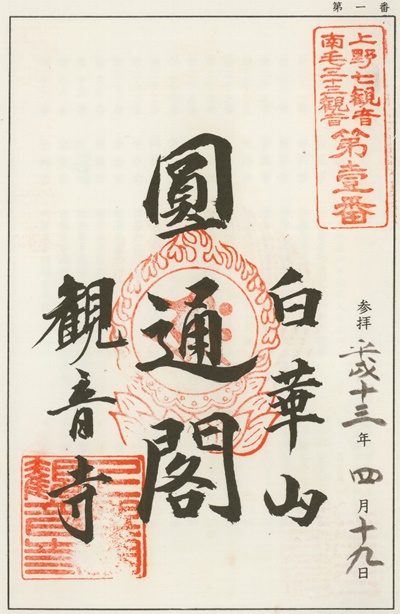 第一番
上野七観音
南毛三十三観音
第壹番
参拝 平成十三年 四月十九日
白華山
圓通閣
観音寺